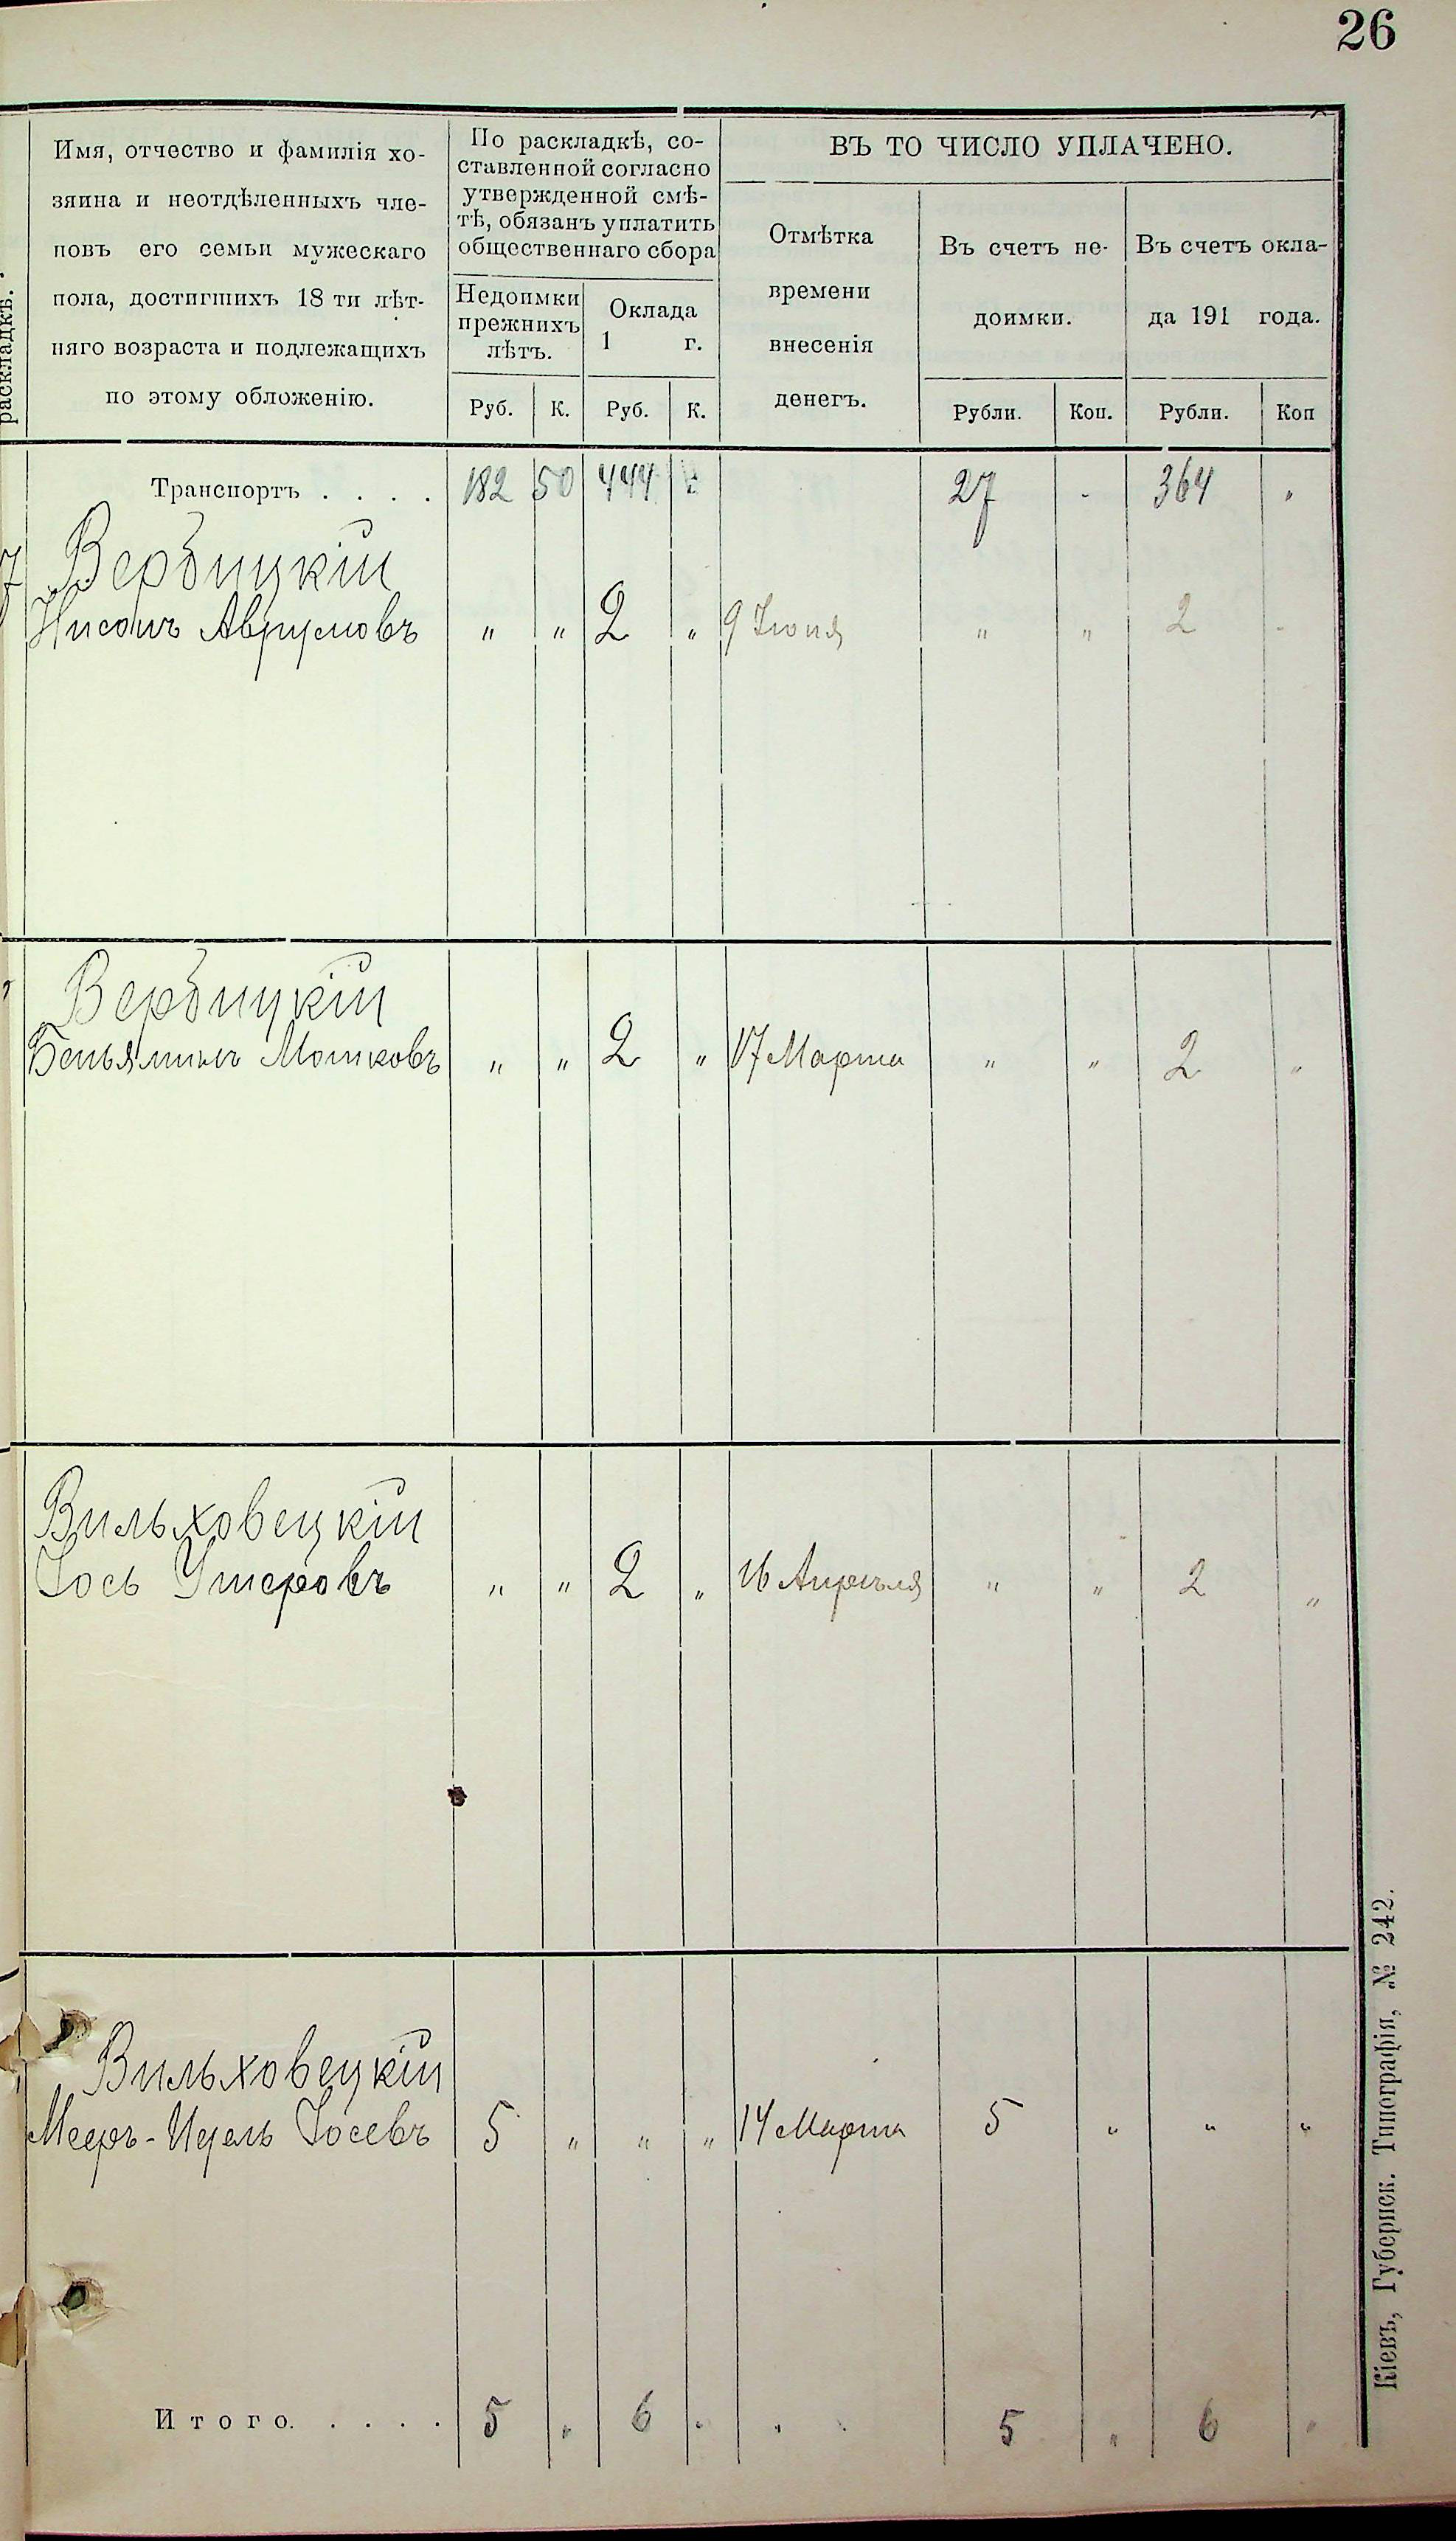 26
раскладкѣ.
Имя, отчество и фамилія хо-
зяина и неотдѣленныхъ чле-
новъ его семьи мужескаго
пола, достигшихъ 18 ти лѣт-
няго возраста и подлежащихъ
по этому обложенію.
По раскладкѣ, со-
ставленной согласно
утвержденной смѣ-
тѣ, обязанъ уплатить
общественнаго сбора
Недоимки
прежнихъ
лѣтъ.
Оклада
1 г.
Руб. К. Руб. К.
ВЪ ТО ЧИСЛО УПЛАЧЕНО.
Отмѣтка
времени
внесенія
денегъ.
Въ счетъ не-
доимки.
Въ счетъ окла-
да 191 года.
Рубли. Коп. Рубли. Коп
Транспортъ . . . . 182 50 444 " 27 - 364 "
7 Вербицкій
Нисонъ Аврумовъ " " 2 " 9 Іюня " " 2 -
Вербицкій
Беньяминъ Мошковъ " " 2 " 17 Марта " " 2 "
Вильховецкій
Іось Ушеровъ " " 2 " 16 Апрѣля " " 2 "
Вильховецкій
Мееръ-Идель Іосевъ 5 " " " 14 Марта 5 " " "
Итого. . . . . 5 " 6 " 5 " 6 "
Кіевъ, Губернск. Типографія, № 242.